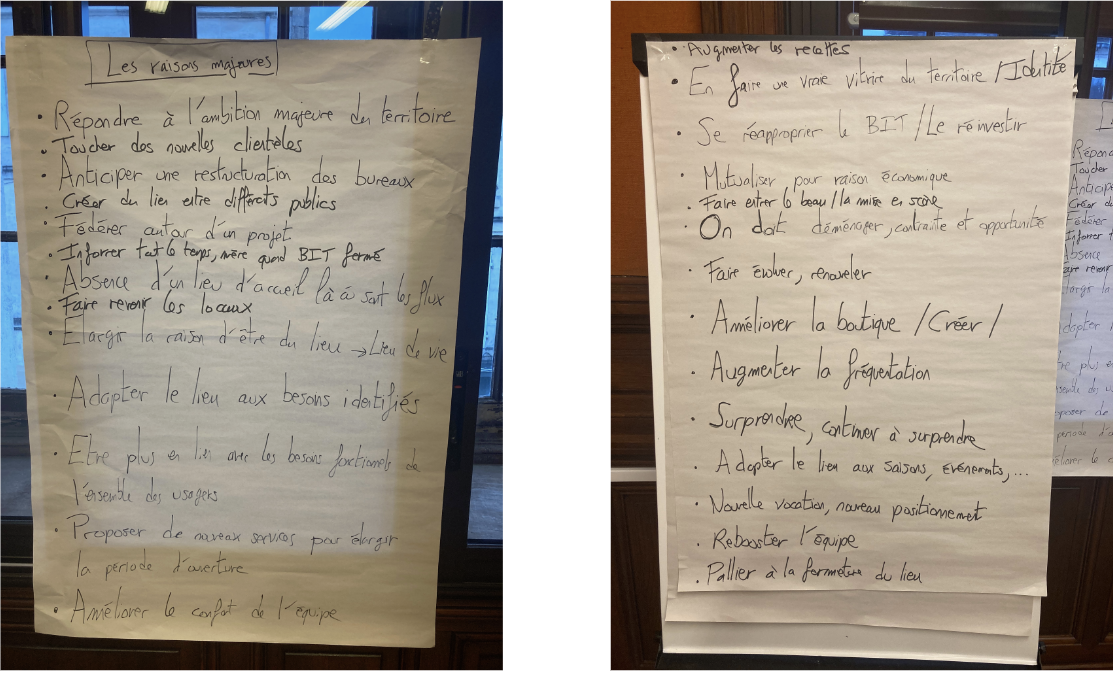 Les raisons majeures
• Répondre à l'ambition majeure du territoire
• Toucher des nouvelles clientèles
• Anticiper une restructuration des bureaux
• Créer du lien entre différents publics
• Fédérer autour d'un projet
• Informer tout le temps, même quand BIT fermé
• Absence d'un lieu d'accueil là où sont les flux
• Faire revenir les locaux
• Elargir la raison d'être du lieu → Lieu de vie
• Adapter le lieu aux besoins identifiés
• Etre plus en lien avec les besoins fonctionnels de
l'ensemble des usagers
• Proposer de nouveaux services pour élargir
la période d'ouverture
• Améliorer le confort de l'équipe
• Augmenter les recettes
• En faire une vraie vitrine du territoire / Identité
• Se réapproprier le BIT / Le réinvestir
• Mutualiser, pour raison économique
• Faire entrer le beau / la mise en scène
• On doit déménager, contrainte et opportunité
• Faire évoluer, renouveler
• Améliorer la boutique / Créer /
• Augmenter la fréquentation
• Surprendre, continuer à surprendre
• Adapter le lieu aux saisons, événements, ...
• Nouvelle vocation, nouveau positionnement
• Rebooster l'équipe
• Pallier à la fermeture du lieu